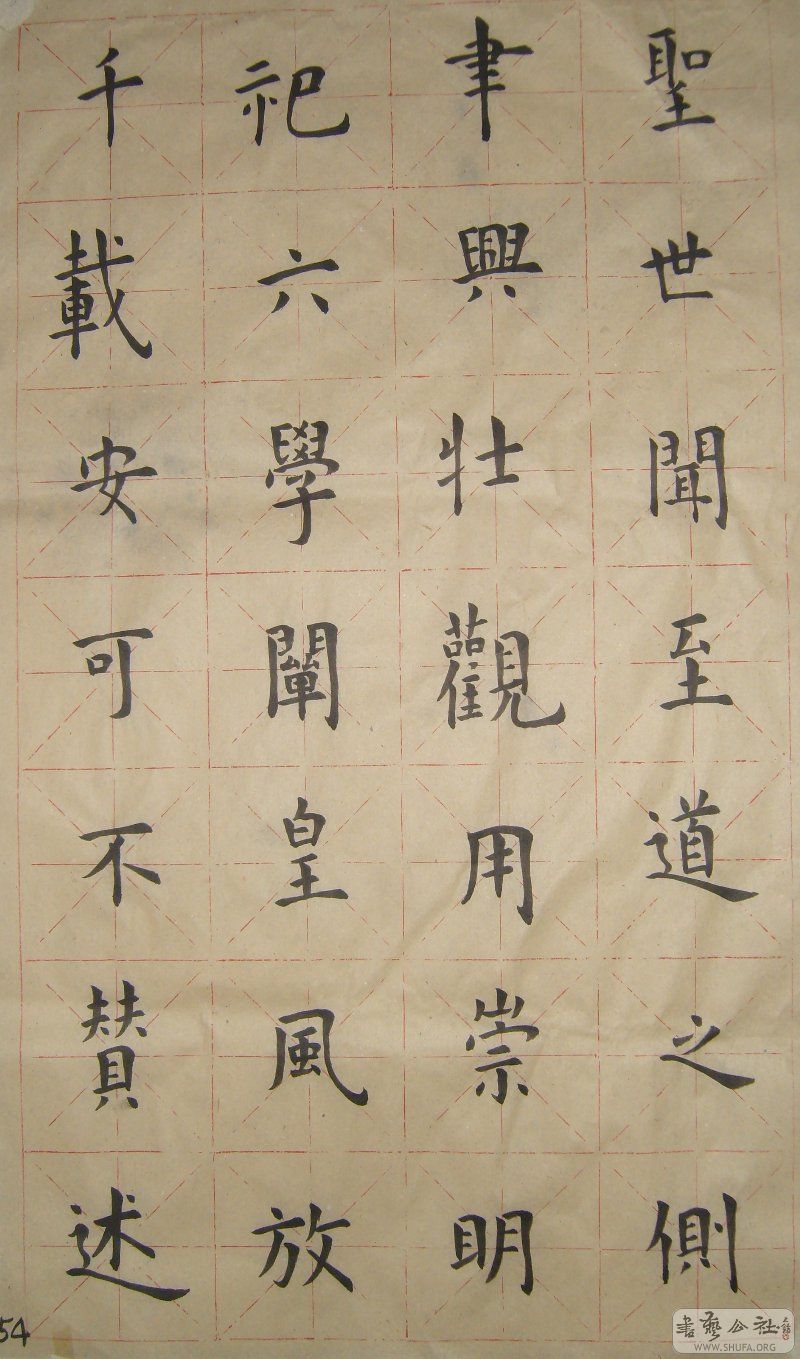 聖世聞至道之側
聿興壯觀用崇明
祀六學闡皇風放
千載安可不賛述
54
書藝公社
WWW.SHUFA.ORG